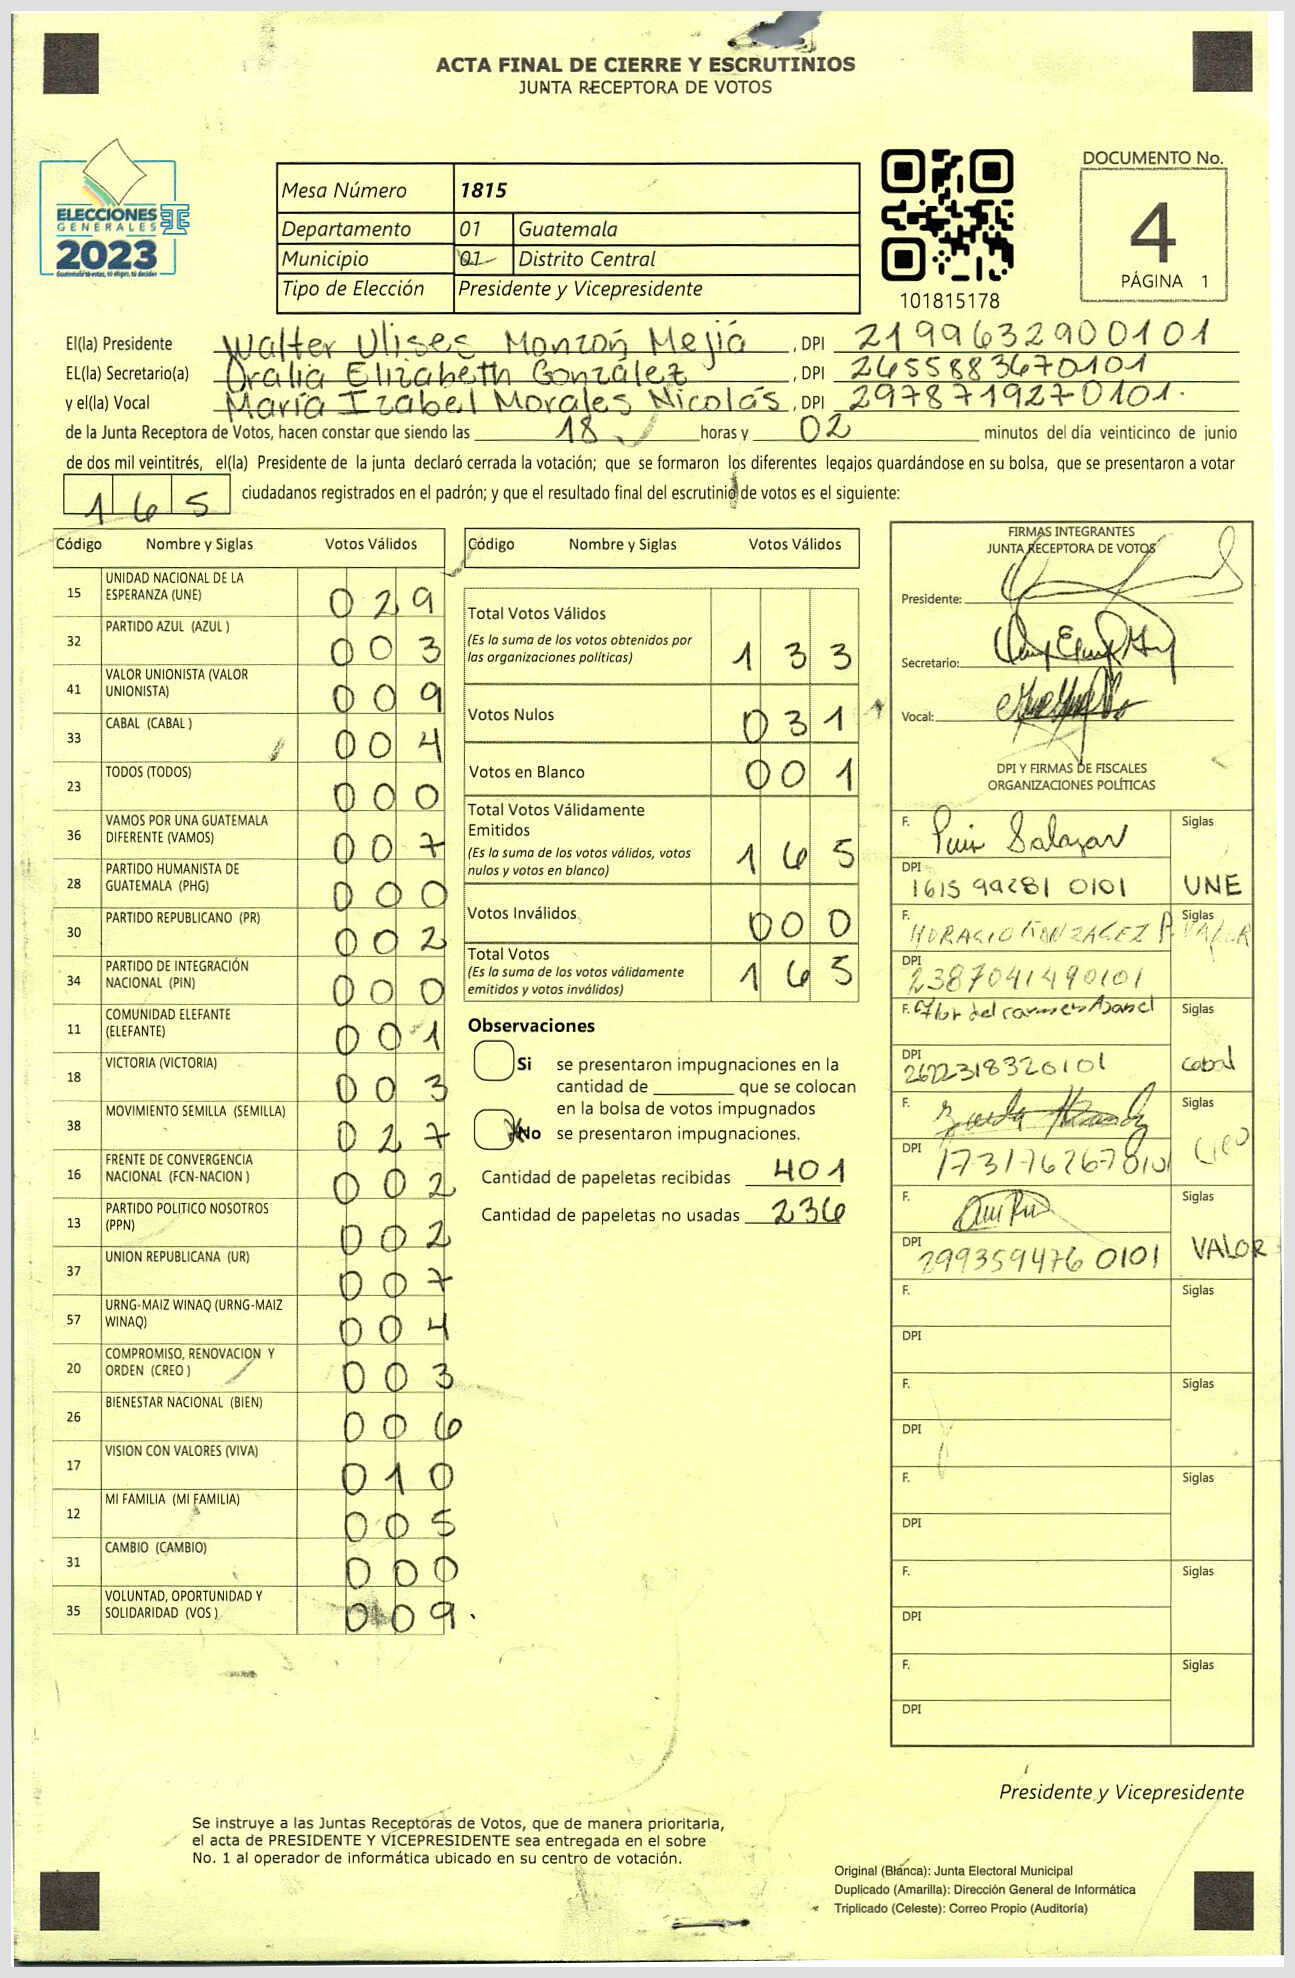 ACTA FINAL DE CIERRE Y ESCRUTINIOS
JUNTA RECEPTORA DE VOTOS
ELECCIONES
GENERALES
2023
Mesa Número 1815
Departamento 01 Guatemala
Municipio 01 Distrito Central
Tipo de Elección Presidente y Vicepresidente
101815178
DOCUMENTO No.
4
PÁGINA 1
El(la) Presidente Walter Ulises Monzón Mejía , DPI 2199632900101
EL(la) Secretario(a) Oralia Elizabeth González , DPI 2655883670101
y el(la) Vocal María Izabel Morales Nicolás , DPI 2978719270101.
de la Junta Receptora de Votos, hacen constar que siendo las 18 horas y 02 minutos del día veinticinco de junio
de dos mil veintitrés, el(la) Presidente de la junta declaró cerrada la votación; que se formaron los diferentes legajos guardándose en su bolsa, que se presentaron a votar
165 ciudadanos registrados en el padrón; y que el resultado final del escrutinio de votos es el siguiente:
Código Nombre y Siglas Votos Válidos
15 UNIDAD NACIONAL DE LA ESPERANZA (UNE) 029
32 PARTIDO AZUL (AZUL ) 003
41 VALOR UNIONISTA (VALOR UNIONISTA) 009
33 CABAL (CABAL ) 004
23 TODOS (TODOS) 000
36 VAMOS POR UNA GUATEMALA DIFERENTE (VAMOS) 007
28 PARTIDO HUMANISTA DE GUATEMALA (PHG) 000
30 PARTIDO REPUBLICANO (PR) 002
34 PARTIDO DE INTEGRACIÓN NACIONAL (PIN) 000
11 COMUNIDAD ELEFANTE (ELEFANTE) 001
18 VICTORIA (VICTORIA) 003
38 MOVIMIENTO SEMILLA (SEMILLA) 027
16 FRENTE DE CONVERGENCIA NACIONAL (FCN-NACION ) 002
13 PARTIDO POLITICO NOSOTROS (PPN) 002
37 UNION REPUBLICANA (UR) 007
57 URNG-MAIZ WINAQ (URNG-MAIZ WINAQ) 004
20 COMPROMISO, RENOVACION Y ORDEN (CREO ) 003
26 BIENESTAR NACIONAL (BIEN) 006
17 VISION CON VALORES (VIVA) 010
12 MI FAMILIA (MI FAMILIA) 005
31 CAMBIO (CAMBIO) 000
35 VOLUNTAD, OPORTUNIDAD Y SOLIDARIDAD (VOS ) 009.
Código Nombre y Siglas Votos Válidos
Total Votos Válidos 133
(Es la suma de los votos obtenidos por
las organizaciones políticas)
Votos Nulos 031
Votos en Blanco 001
Total Votos Válidamente
Emitidos 165
(Es la suma de los votos válidos, votos
nulos y votos en blanco)
Votos Inválidos 000
Total Votos 165
(Es la suma de los votos válidamente
emitidos y votos inválidos)
Observaciones
Si se presentaron impugnaciones en la
cantidad de ________ que se colocan
en la bolsa de votos impugnados
No se presentaron impugnaciones.
Cantidad de papeletas recibidas 401
Cantidad de papeletas no usadas 236
FIRMAS INTEGRANTES
JUNTA RECEPTORA DE VOTOS
Presidente:
Secretario:
Vocal:
DPI Y FIRMAS DE FISCALES
ORGANIZACIONES POLÍTICAS
F. Salazar Siglas
DPI 1615 99281 0101 UNE
F. HORACIO GONZALEZ P. Siglas VALOR
DPI 2387041490101
F. Flor del carmen Siglas
DPI 2622318320101 cabal
F. Siglas
DPI 1731762670101 CREO
F. Siglas
DPI 299359476 0101 VALOR
F. Siglas
DPI
F. Siglas
DPI
F. Siglas
DPI
F. Siglas
DPI
F. Siglas
DPI
Presidente y Vicepresidente
Se instruye a las Juntas Receptoras de Votos, que de manera prioritaria,
el acta de PRESIDENTE Y VICEPRESIDENTE sea entregada en el sobre
No. 1 al operador de informática ubicado en su centro de votación.
Original (Blanca): Junta Electoral Municipal
Duplicado (Amarilla): Dirección General de Informática
Triplicado (Celeste): Correo Propio (Auditoría)